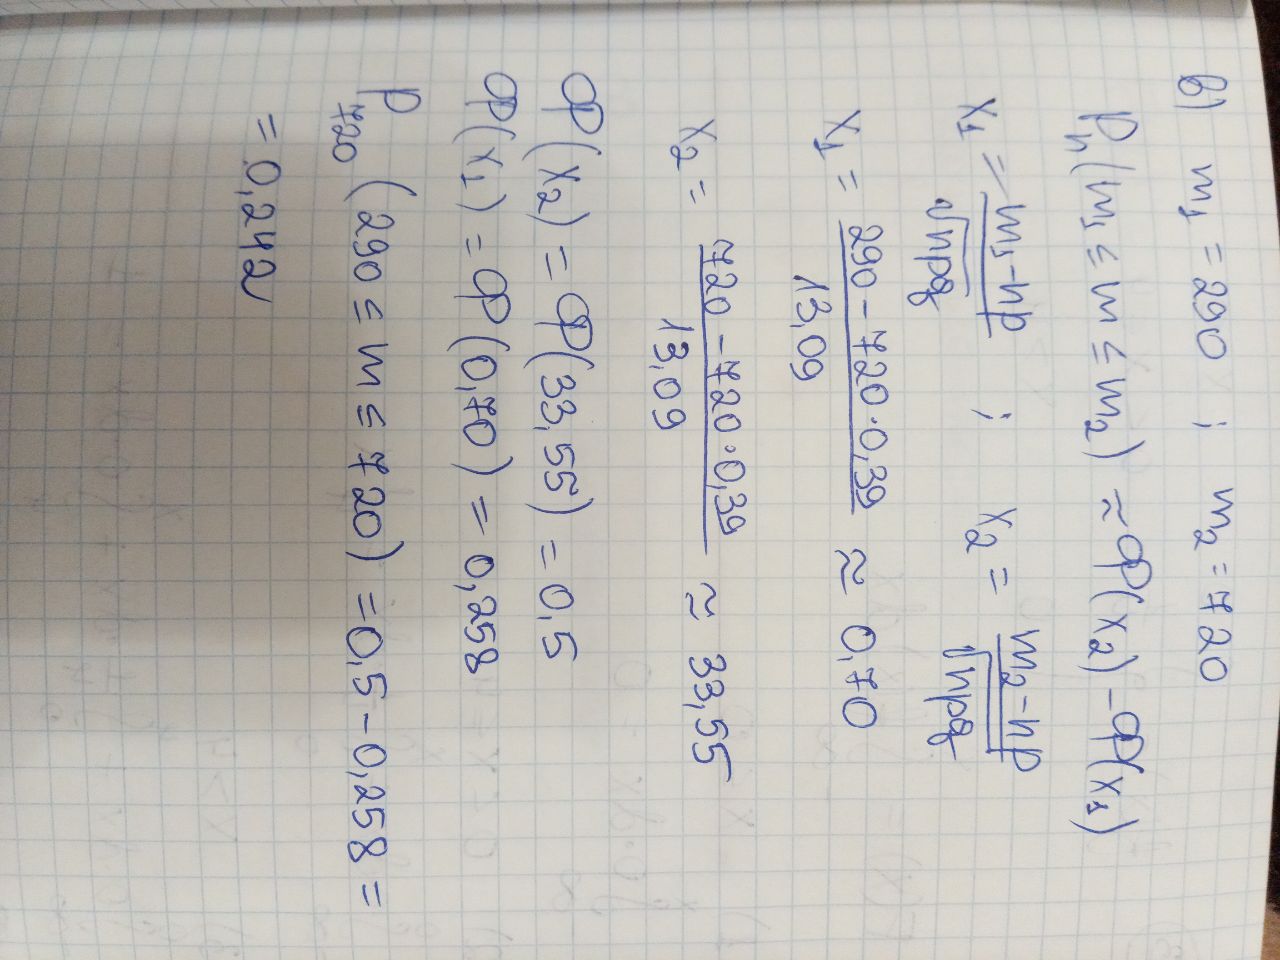 в) m₁ = 290 ; m₂ = 720
Pₙ(m₁ ≤ m ≤ m₂) ≈ Ф(x₂) - Ф(x₁)
x₁ = (m₁ - np)/√npq ; x₂ = (m₂ - np)/√npq
x₁ = (290 - 720·0,39)/13,09 ≈ 0,70
x₂ = (720 - 720·0,39)/13,09 ≈ 33,55
Ф(x₂) = Ф(33,55) = 0,5
Ф(x₁) = Ф(0,70) = 0,258
P₇₂₀(290 ≤ m ≤ 720) = 0,5 - 0,258 =
= 0,242